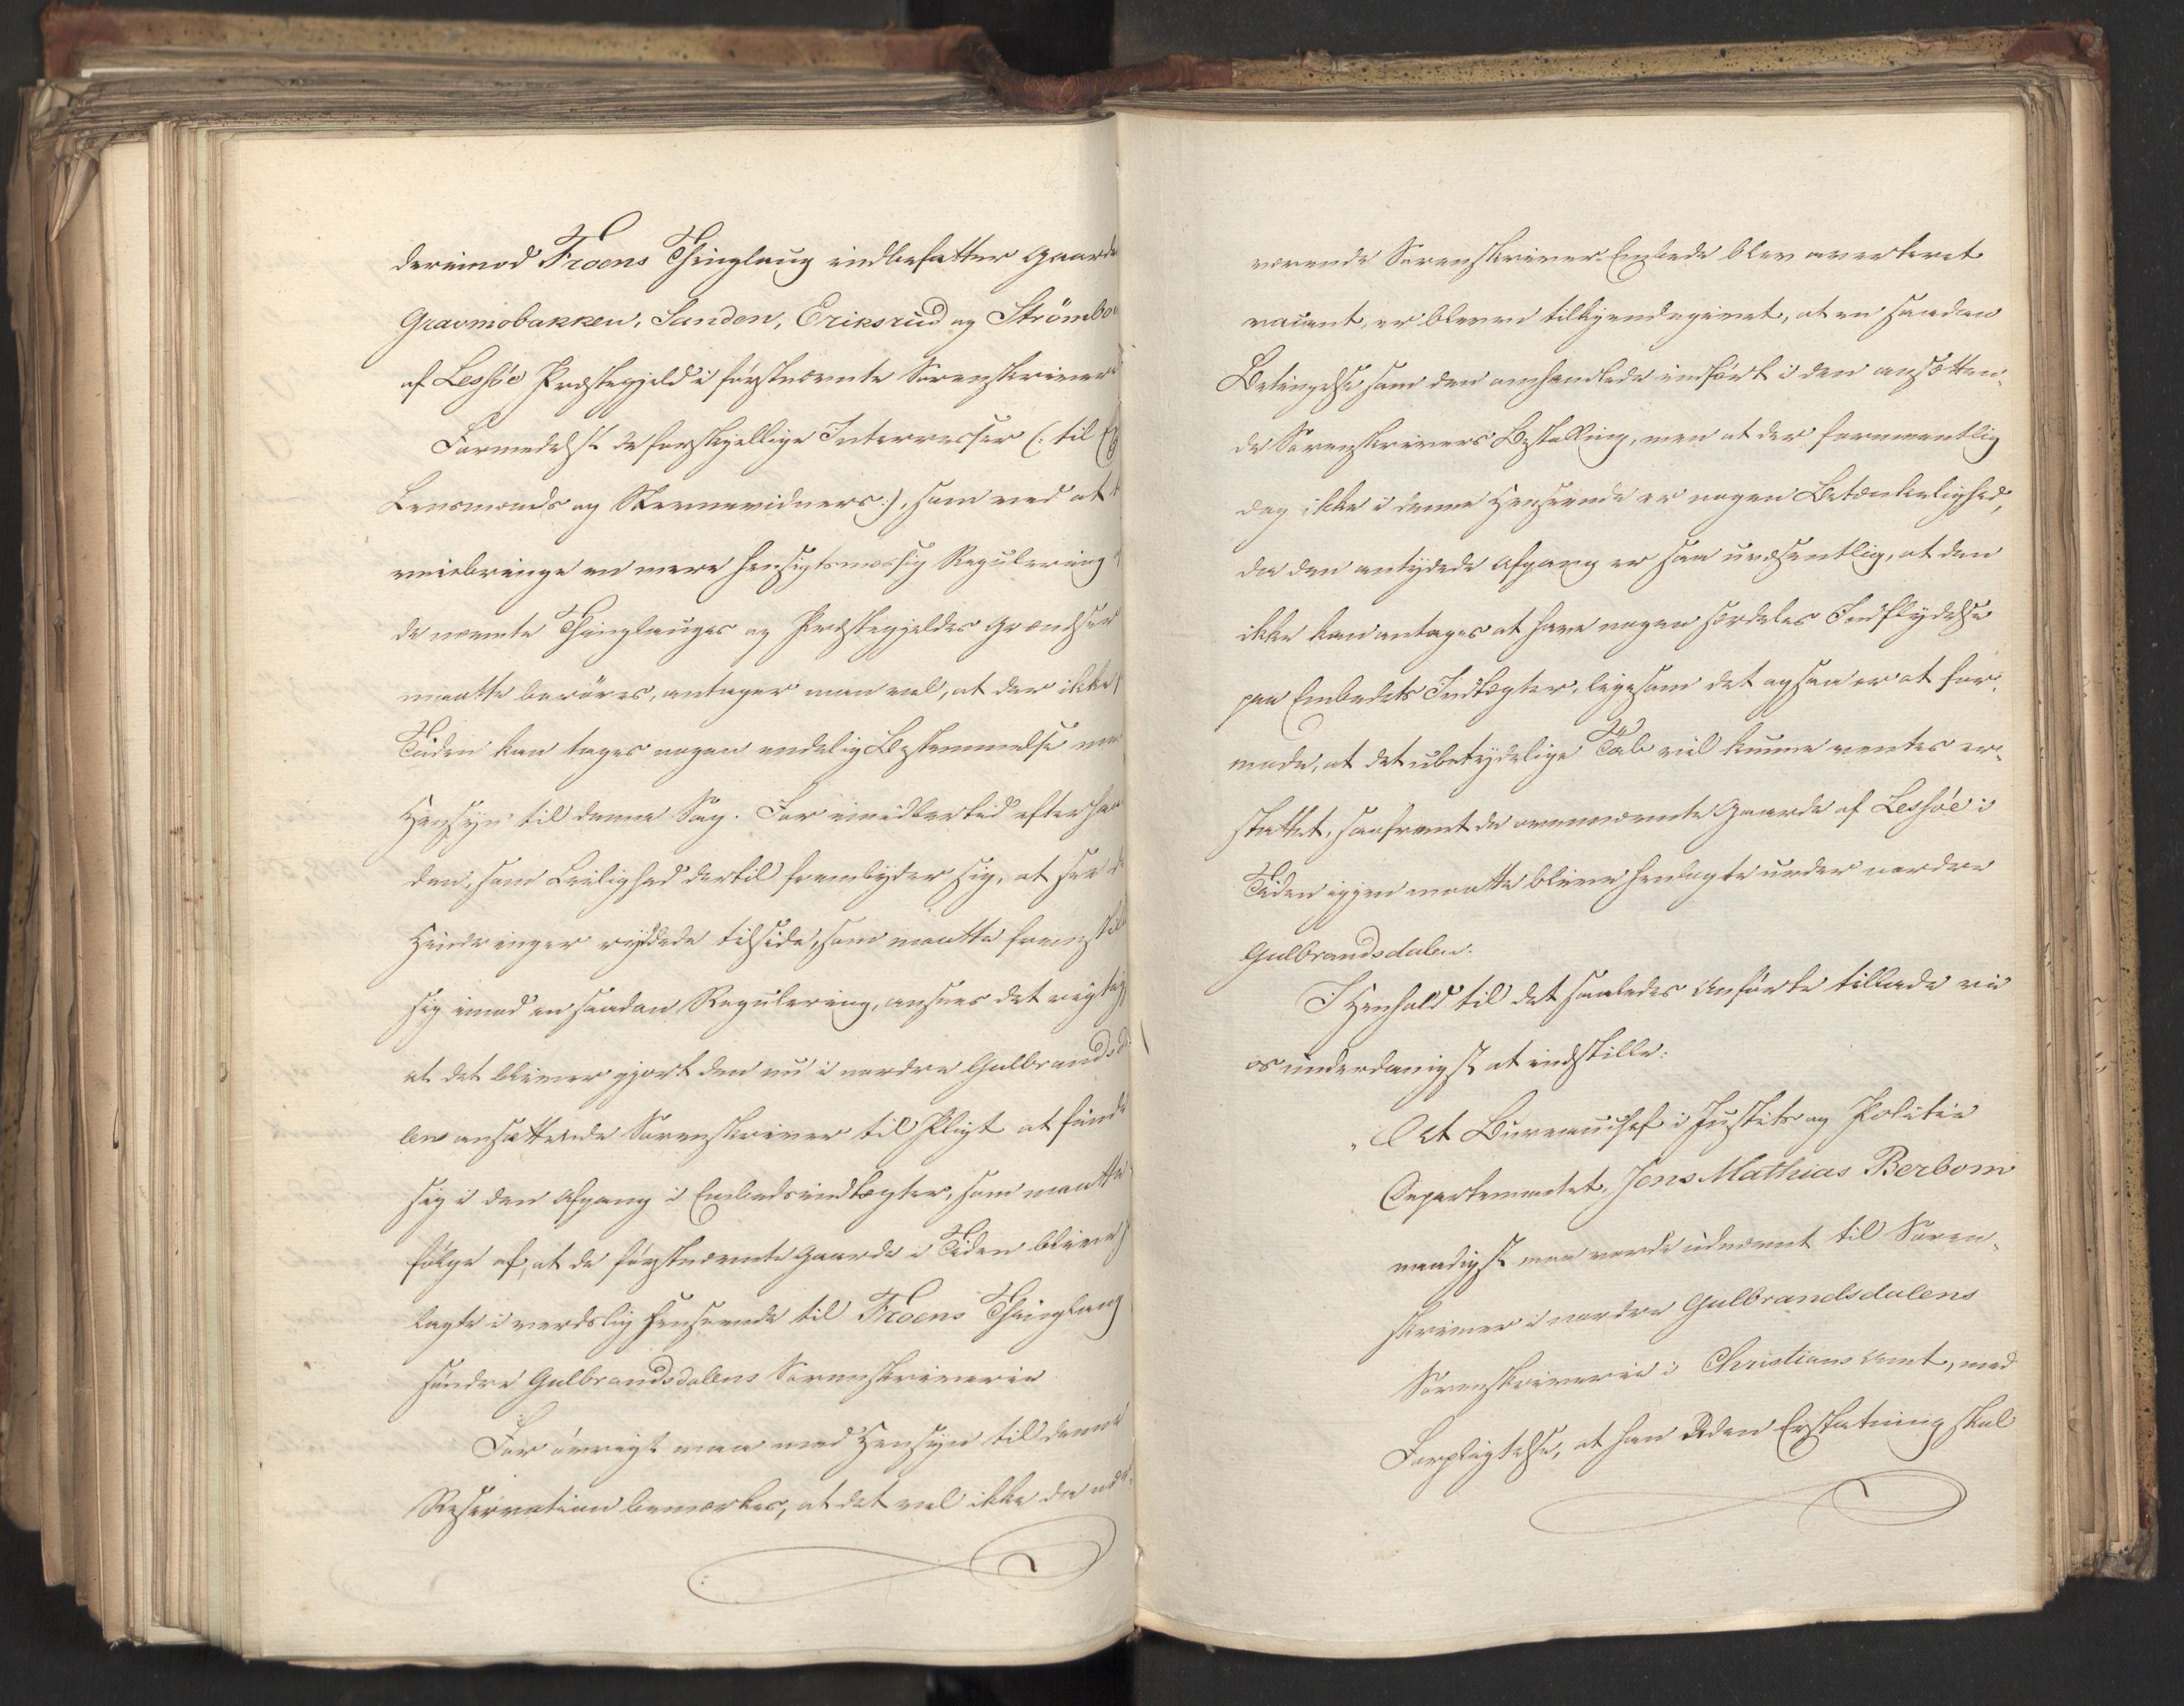 derimod Froens Thinglaug indbefatter Gaarde
Gravmobakken, Sanden, Eriksrud og Strömbo
af Lessöe Præstegjeld i förstnævnte Sorenskriveri
Formedelst de forskjellige Interresser (: til
Lensmænds og Stevnevidners:), som ved at
veiebringe en mere hensigtsmæssig Regulering
de nævnte Thinglauges og Præstegjeldes Grændser
maatte beröres, antager man vel, at der ikke
Tiden kan tages nogen endelig Bestemmelse med
Hensyn til denne Sag. For imidlertid efterhaan
den, som Leilighed dertil frembyder sig, at see de
Hindringer ryddede tilside, som maatte fremstille
sig imod en saadan Regulering, ansees det rigtig
at det bliver gjort den nu i nordre Gulbrandsda
len ansættende Sorenskriver til Pligt at finde
sig i den Afgang i Embedsindtægter, som maatte
fölge af, at de förstnævnte Gaarde i Tiden bliver
lagte i verdslig Henseende til Froens Thinglaug
söndre Gulbrandsdalens Sorenskriverie
For övrigt maa med Hensyn til denne
Reservation bemærkes, at det vel ikke da nd
værende Sorenskriver-Embede blev averteret
vacant, er bleven tilkjendegivet, at en saadan
Betingelse som den omhandlede indfört i den ansætten-
de Sorenskrivers Bestalling, men at der formeentlig
dog ikke i denne Henseende er nogen Betænkelighed,
da den antydede Afgang er saa uvæsentlig, at den
ikke kan antages at have nogen særdeles Indflydelse
paa Embedets Indtægter, ligesom det ogsaa er at for-
mode, at det ubetydelige Tab vil kunne ventes er-
stattet, saafremt de ovennævnte Gaarde af Lessöe i
Tiden igjen maatte blive henlagte under nordre
Gulbrandsdalen.
I Henhold til det saaledes Anförte tillade vi
os underdanigst at indstille:
"At Bureauchef i Justits og Politie
Departementet, Jens Mathias Berbom
naadigst maa vorde udnævnt til Soren-
skriver i nordre Gulbrandsdalens
Sorenskriverie i Christians Amt, med
Forpligtelse, at han uden Erstatning skal